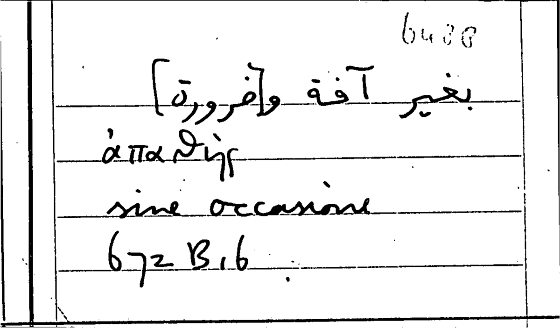 بغير آفة و[ضرورة]
ἀπαθής
sine occasione
672 B, 6